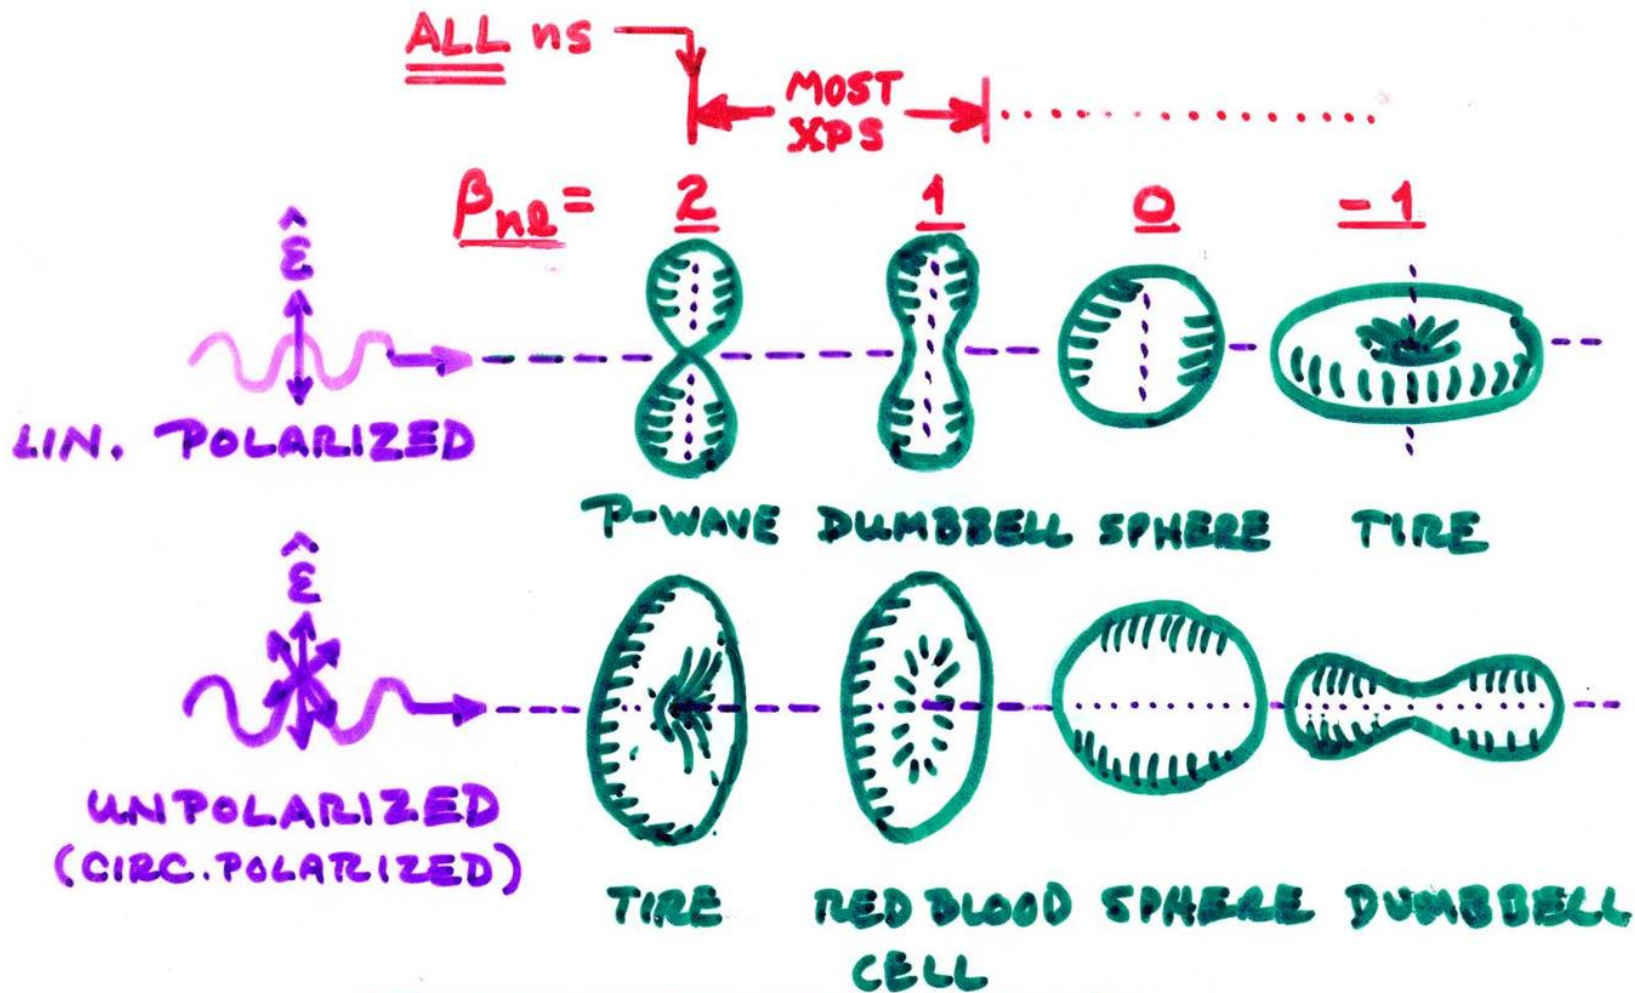 ALL ns
MOST
XPS
βnl = 2 1 0 -1
ε̂
LIN. POLARIZED
P-WAVE DUMBBELL SPHERE TIRE
ε̂
UNPOLARIZED
(CIRC. POLARIZED)
TIRE RED BLOOD SPHERE DUMBBELL
CELL